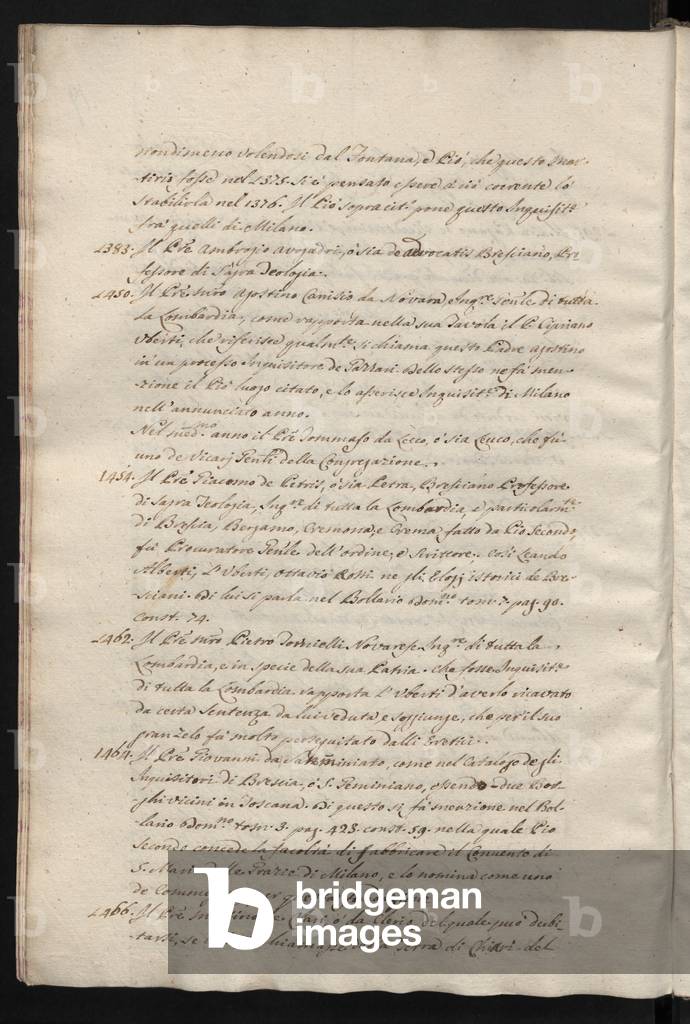 nondimeno volendosi dal Fontana, e Piò, che questo mar-
tirio fosse nel 1375. si è pensato essere a ciò coerente lo
stabilirlo nel 1376. Il Piò sopracit. pone questo Inquisit.e
frà quelli di Milano.
1383. Il Prẽ Ambrogio Avogadri, ò sia de Advocatis Bresciano, Pro
fessore di Sagra Teologia.
1450. Il Prẽ Mro Agostino Canisio da Novara, Inq.re Gen̄le di tutta
la Lombardia, come rapporta nella sua Tavola il P. Cipriano
Uberti, che riferisce qualm.te si chiama questo Padre Agostino
in un processo Inquisitore de Dello stesso ne fà men-
zione il Piò luogo citato, e lo asserisce Inquisit.e di Milano
nell'annunciato anno.
Nel med.mo anno il Prẽ Tommaso da Lecco, ò sia Leuco, che fù
uno de Vicarj Gen̄li della Congregazione.
1454. Il Prẽ Giacomo de Petris, ò sia Petra, Bresciano Professore
di Sagra Teologia, Inq.re di tutta la Lombardia, e particolarm.te
di Brescia, Bergamo, Cremona, e Crema, fatto da Pio Secondo,
fù Procuratore Gen̄le dell'ordine, e Scrittore. Così Leandro
Alberti, l'Uberti, Ottavio Rossi ne gli Elogj istorici de Bre-
sciani. Di lui si parla nel Bollario Dom.no tom. pag. 90.
const. 74.
1462. Il Prẽ Mro Pietro Tornielli Novarese Inq.re di tutta la
Lombardia, e in specie della sua Patria. Che fosse Inquisit.e
di tutta la Lombardia rapporta l'Uberti d'averlo ricavato
da certa Sentenza da lui veduta e soggiunge, che per il suo
gran zelo fù molto perseguitato dalli Eretici.
1464. Il Prẽ Giovanni da Sanminiato, come nel Catalogo de gli
Inquisitori di Brescia, ò S. Geminiano, essendo due Bor-
ghi vicini in Toscana. Di questo si fà menzione nel Bol-
lario Dom.no tom. 3. pag. 423. const. 59. nella quale Pio
Secondo concede la facoltà di fabbricare il Convento di
S. Maria delle Grazie di Milano, e lo nomina come uno
de
1466. Il Prẽ ò da Clerio del quale può dubi-
tarsi, se terra di Chiari del
bridgeman
images